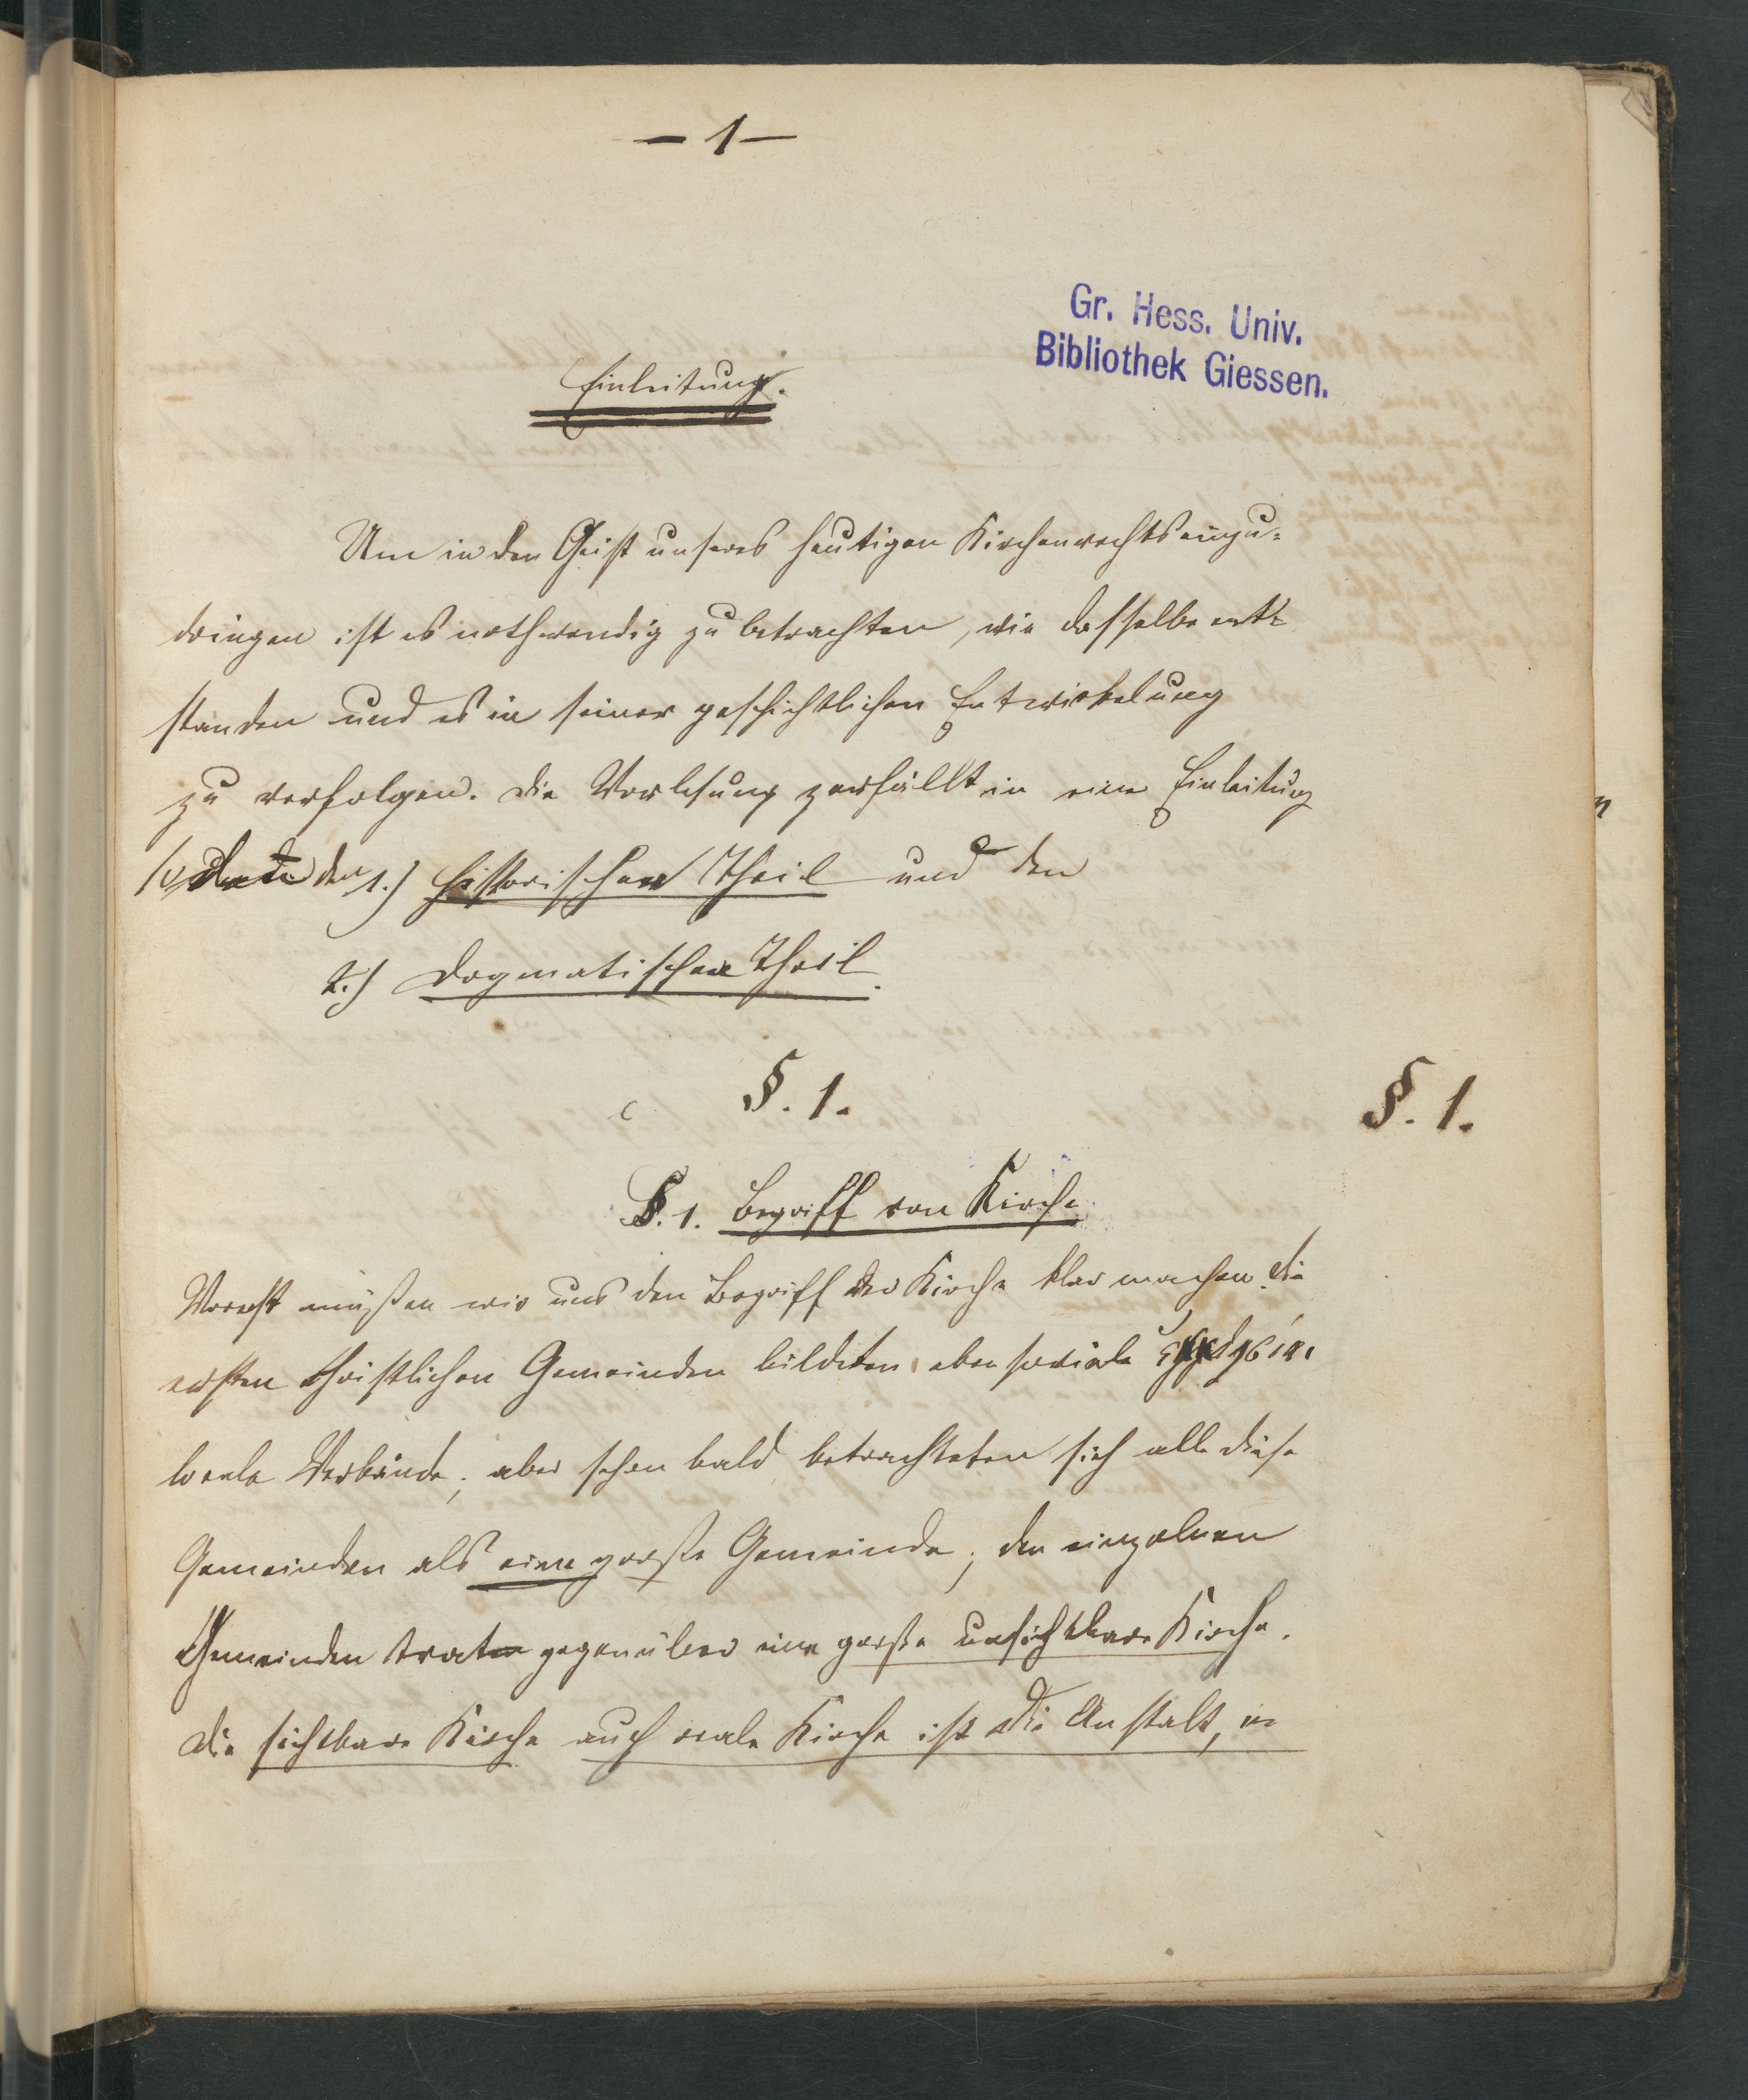 — 1 —
Gr. Hess. Univ.
Bibliothek Giessen.
Einleitung.
Um in den Geist unseres heutigen Kirchenrechts einzu-
dringen ist es nothwendig zu betrachten, wie dasselbe ent-
standen und es in seiner geschichtlichen Entwickelung
zu verfolgen. Die Vorlesung zerfällt in eine Einleitung
den 1.) historischen Theil und den
2.) dogmatischen Theil.
§. 1.
§. 1.
§. 1. Begriff von Kirche
Vorerst müßen wir uns den Begriff der Kirche klar machen. Die
ersten christlichen Gemeinden bildeten eben soviele
locale Verbände; aber schon bald betrachteten sich alle diese
Gemeinden als eine große Gemeinde; den einzelnen
Gemeinden trat gegenüber eine große unsichtbare Kirche.
Die sichtbare Kirche auch reale Kirche ist die Anstalt, in